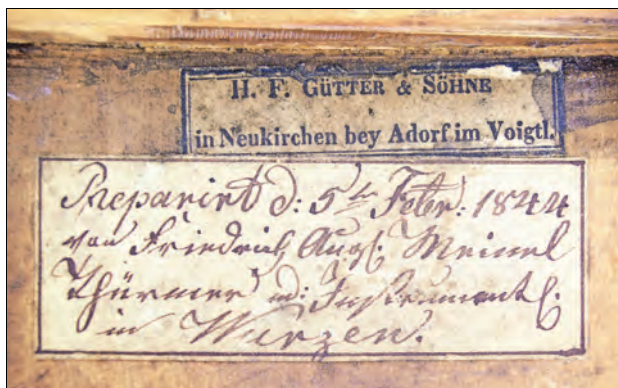 H. F. GÜTTER & SÖHNE
in Neukirchen bey Adorf im Voigtl.
Reparirt d: 5t Febr: 1844
von Friedrich Aug. Meinel
Thürmer u: Instrument
in Wurzen.